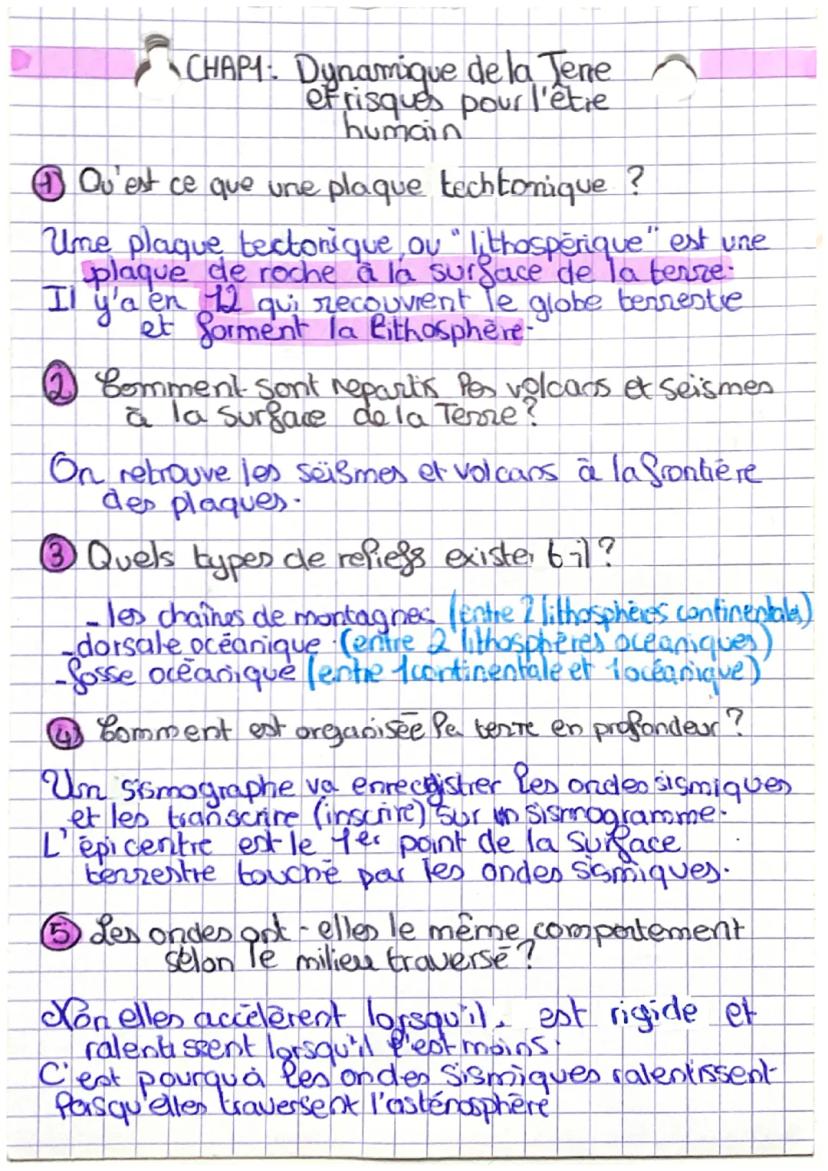 CHAP1: Dynamique de la Terre
et risques pour l'être
humain
1 Qu'est ce que une plaque techtonique ?
Une plaque tectonique, ou "lithospérique" est une
plaque de roche à la surface de la terre.
Il y'a en 12 qui recouvrent le globe terrestre
et forment la lithosphère.
2 Comment sont repartis les volcans et seismes
à la surface de la Terre?
On retrouve les séismes et volcans à la frontière
des plaques.
3 Quels types de reliefs existe t-il ?
- les chaînes de montagnes (entre 2 lithosphères continentales)
- dorsale océanique (entre 2 lithosphères océaniques)
- fosse océanique (entre 1 continentale et 1 océanique)
4 Comment est organisée la terre en profondeur ?
Un sismographe va enregistrer les ondes sismiques
et les transcrire (inscrire) sur un sismogramme.
L'épicentre est le 1er point de la surface
terrestre touché par les ondes sismiques.
5 Les ondes ont-elles le même comportement
selon le milieu traversé ?
Non elles accélèrent lorsqu'il est rigide et
ralentissent lorsqu'il l'est moins.
C'est pourquoi les ondes sismiques ralentissent
lorsqu'elles traversent l'asténosphère